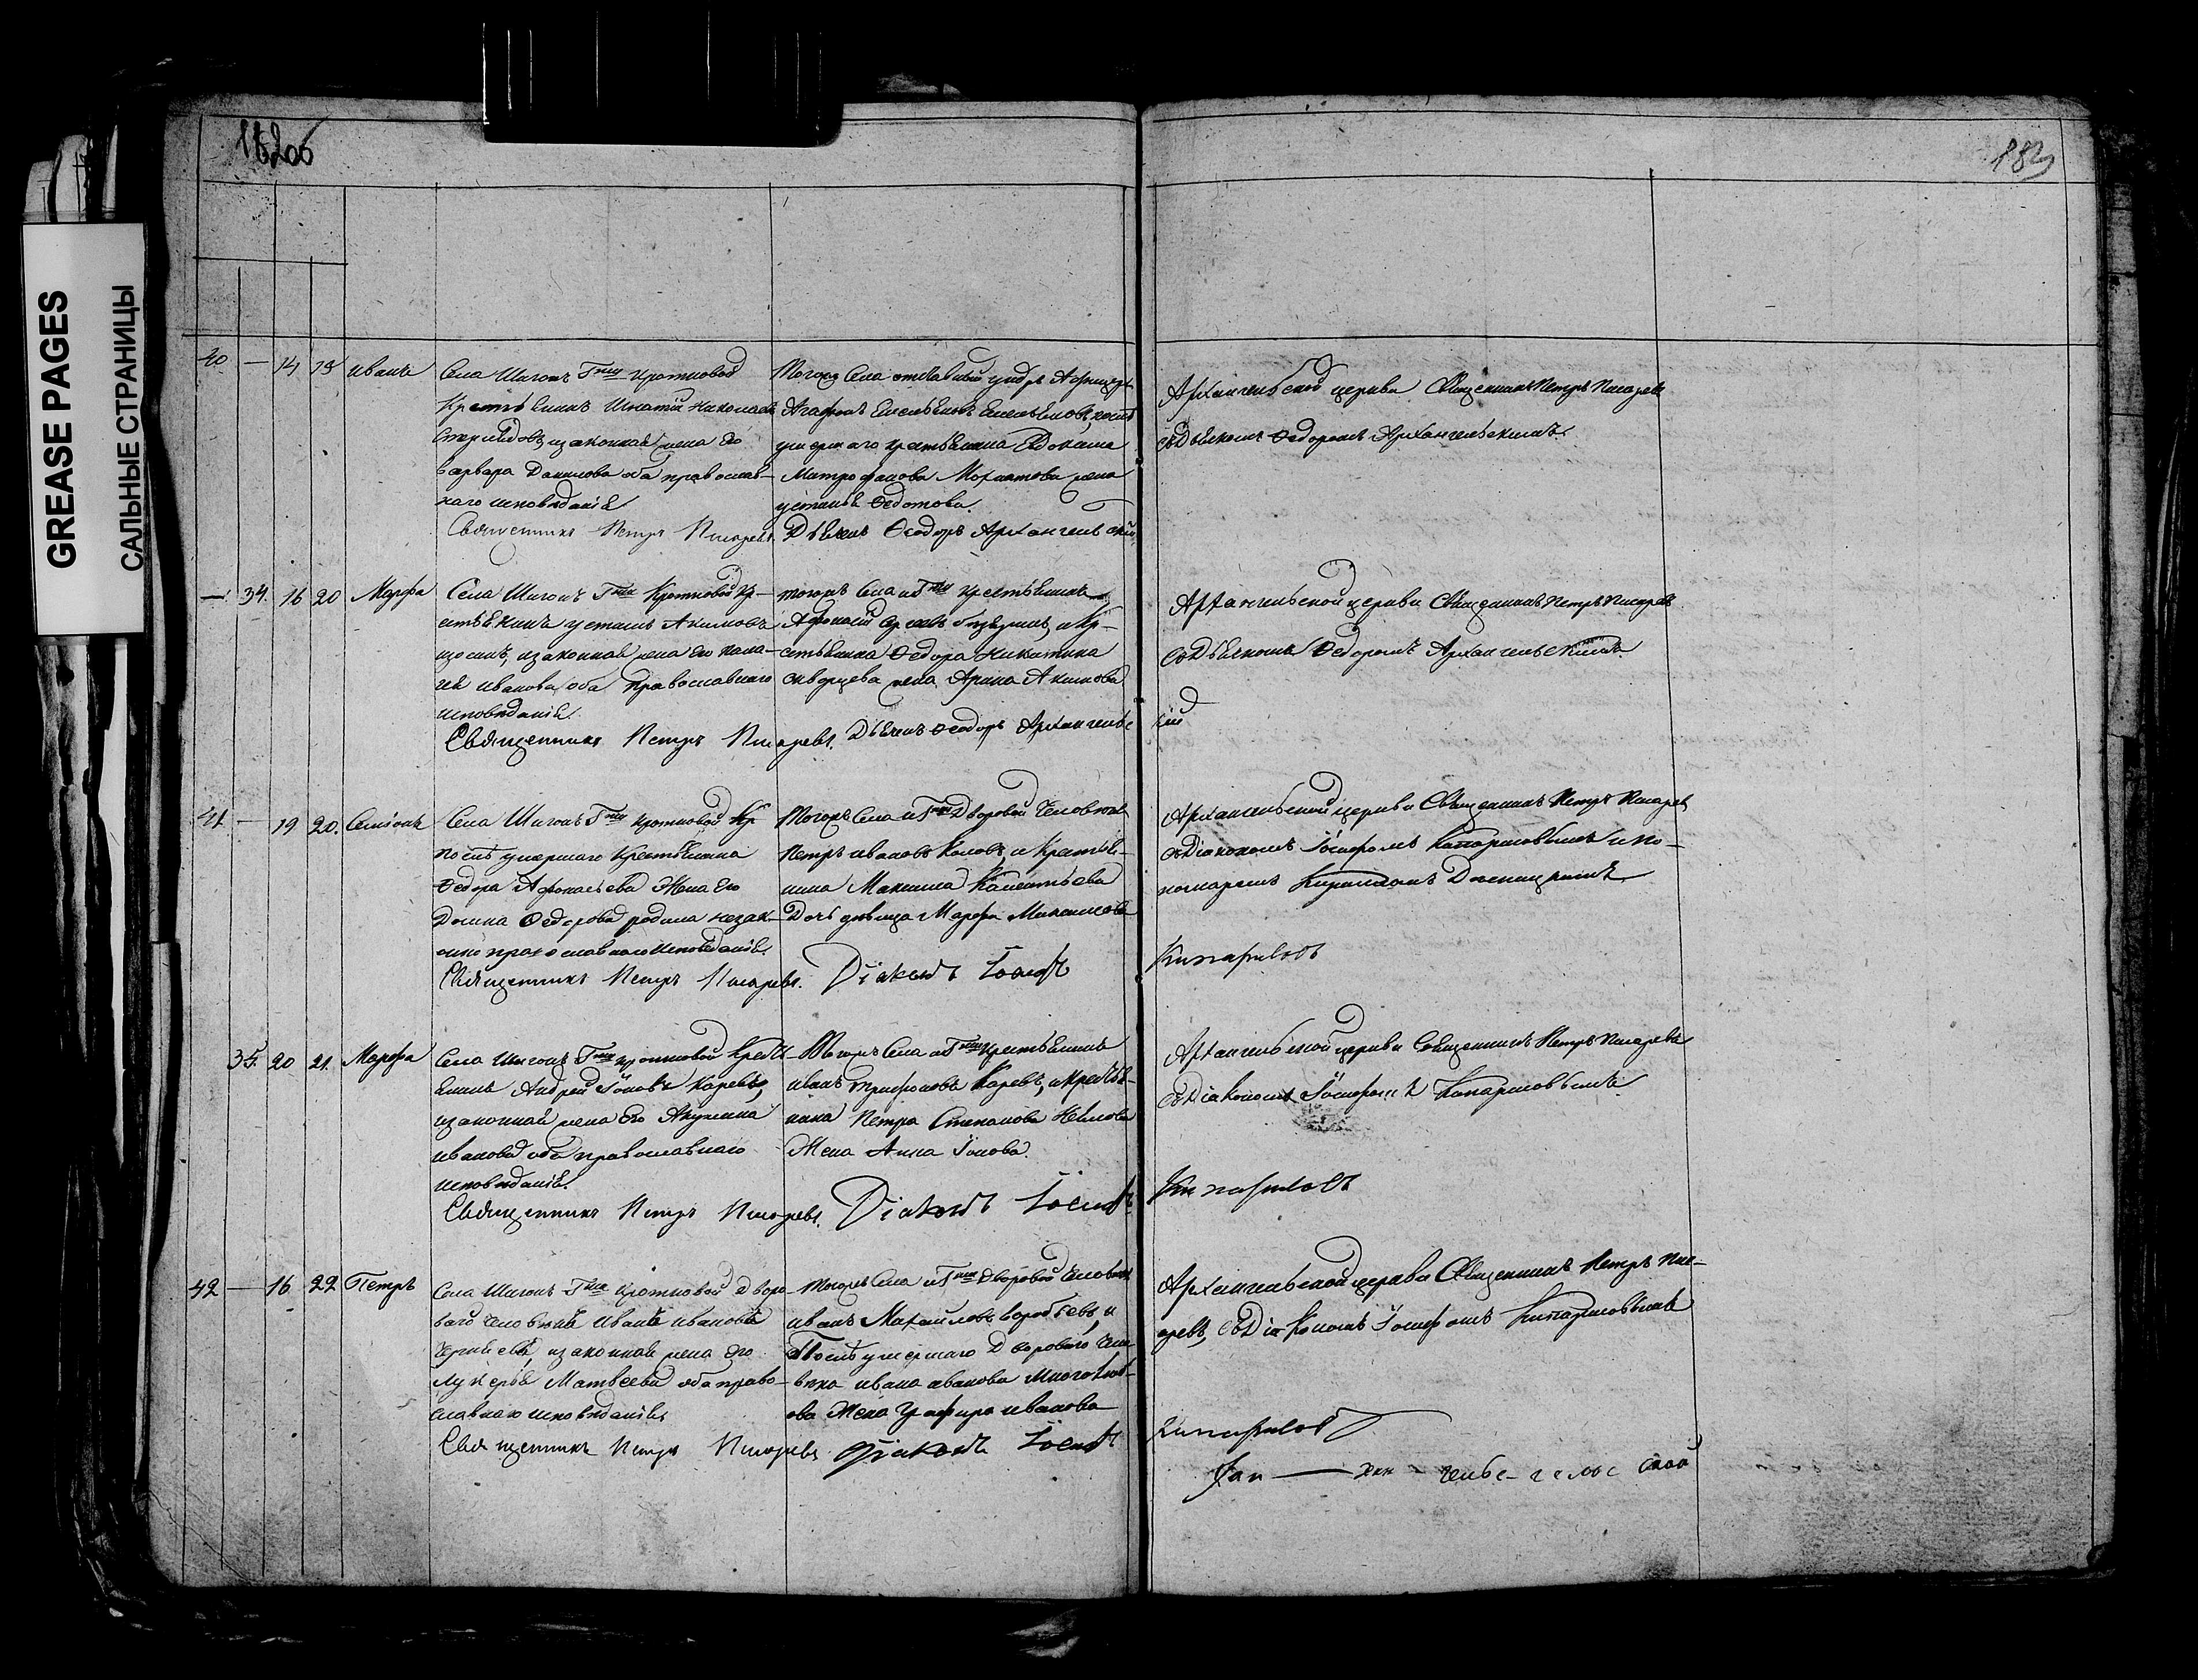 GREASE PAGES
САЛЬНЫЕ СТРАНИЦЫ
183
40 — 14 19 иванъ
Села Шигонъ Гжи Кротковой
Крестьянинъ Игнатій Николаевъ
и законная жена его
варвара Данилова оба православ-
наго исповѣданія
Священникъ Петръ Писаревъ.
Тогожъ Села отставный унтръ Афицеръ
Агафонъ Емельяновъ Емельяновъ, посля
умершаго крестьянина Евдокима
Митрофанова жена
устинья Федотова.
Дьячекъ Феодоръ Архангельскій
Архангельской церкви Священникъ Петръ Писаревъ
съ Дьячкомъ Федоромъ Архангельскимъ.
— 34. 16 20 Марфа
Села Шигонъ Гжи Кротковой кр-
естьянинъ устинъ Акимовъ
и законная жена его Пела-
гія иванова оба Православнаго
исповѣданія.
Священникъ Петръ Писаревъ.
тогожъ Села и Гжи крестьянинъ
Афонасій и Кр-
естьянина Федора Никитина
скворцева жена Арина Акимова
Дьячекъ Феодоръ Архангельс
кій
Архангельской церкви Священникъ Петръ Писаревъ
съ Дьячкомъ Федоромъ Архангельскимъ.
41 — 19 20. Семіонъ
Села Шигонъ Гжи Кротковой Кр
послѣ умершаго Крестьянина
Федора Афонасьева Жена его
Домна Федорова родила незак-
онно православнаго исповѣданія.
Священникъ Петръ Писаревъ.
Тогожъ Села и Гжи Дворовой Человѣкъ
Петръ ивановъ Коловъ, и Крестья-
нина Максима
Дочь дѣвица Марфа Максимова
Діаконъ Іосифъ
Кипарисовъ
Архангельской церкви Священникъ Петръ Писаревъ
съ Діакономъ Іосифомъ Кипарисовымъ и по-
номаремъ Кириллomъ
35. 20 21. Марфа
Села Шигонъ Гжи Кротковой Кресть-
янинъ Андрей Іоновъ Каревъ,
и законная жена Его Акулина
иванова оба православнаго
исповѣданія.
Священникъ Петръ Писаревъ.
Тогожъ Села и Гжи крестьянинъ
иванъ Трифоновъ Каревъ, и крестья-
нина Петра Степанова
Жена Анна Іонова.
Діаконъ Іосифъ
Кипарисовъ
Архангельской церкви Священникъ Петръ Писаревъ
съ Діакономъ Іосифомъ Кипарисовымъ
42 — 16 22 Петръ
Села Шигонъ Гжи Кротковой дворо-
ваго человѣка ивана иванова
и законная жена Его
лукерья Матвеева оба право-
славнаго исповѣданія
Священникъ Петръ Писаревъ
Тогожъ Села и Гжи Дворовой человѣкъ
иванъ Михаиловъ воробьевъ, и
Послѣ умершаго Двороваго чело-
вѣка ивана иванова
Жена иванова
Діаконъ Іосифъ
Кипарисовъ
Архангельской церкви Священникъ Петръ Пис-
аревъ, съ Діакономъ Іосифомъ Кипарисовымъ